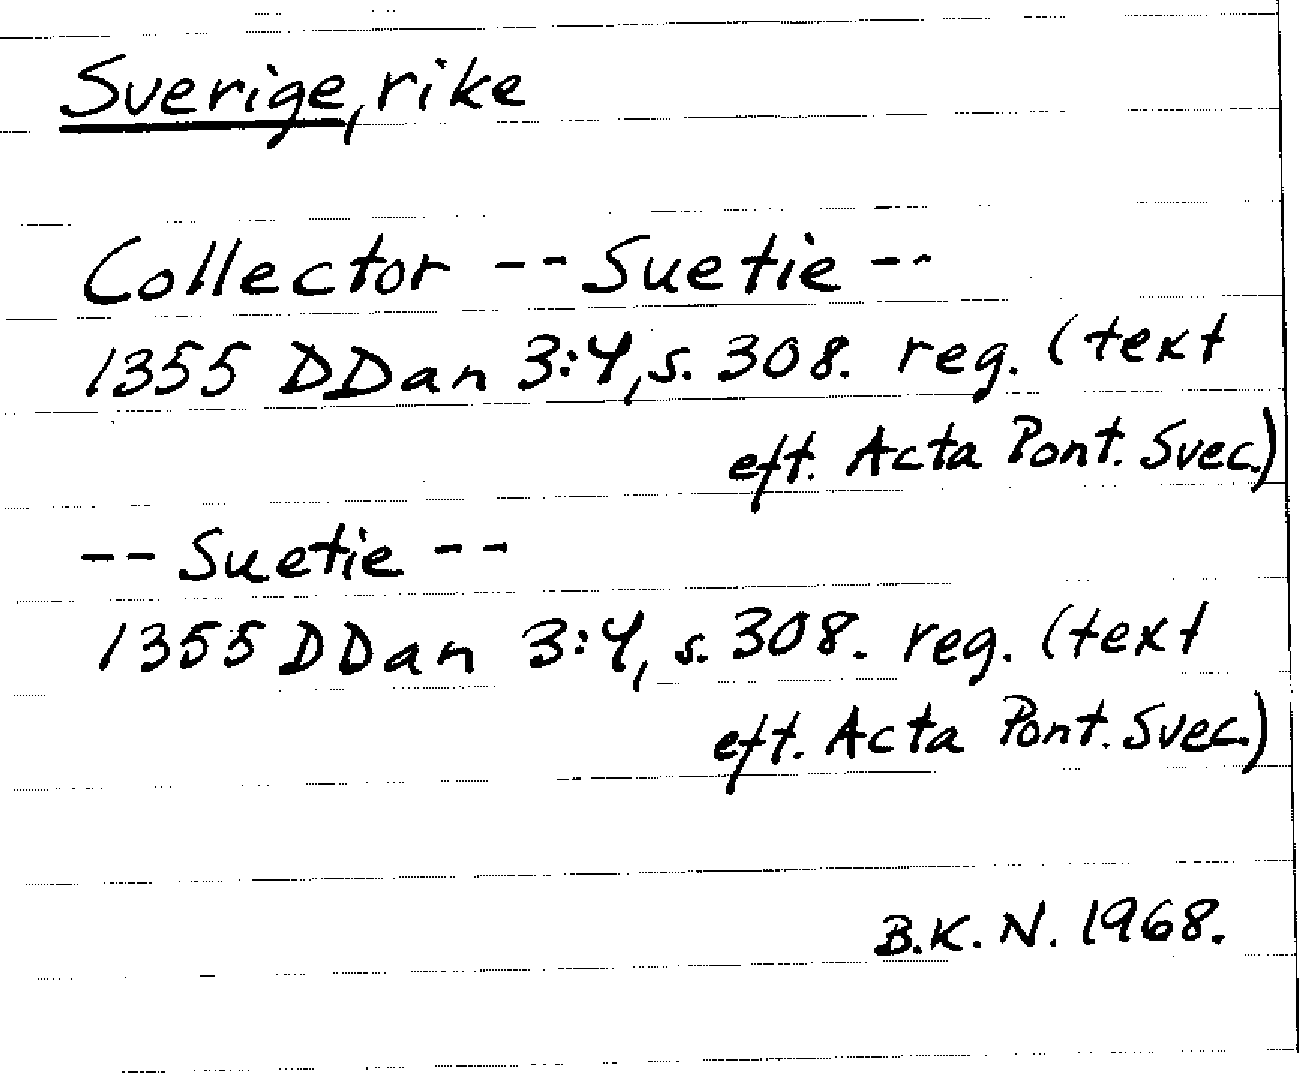 Sverige, rike
Collector -- Suetie --
1355 DDan 3:4, s. 308. reg. (text
eft. Acta Pont. Svec.)
-- Suetie --
1355 DDan 3:4, s. 308. reg. (text
eft. Acta Pont. Svec.)
B.K.N. 1968.